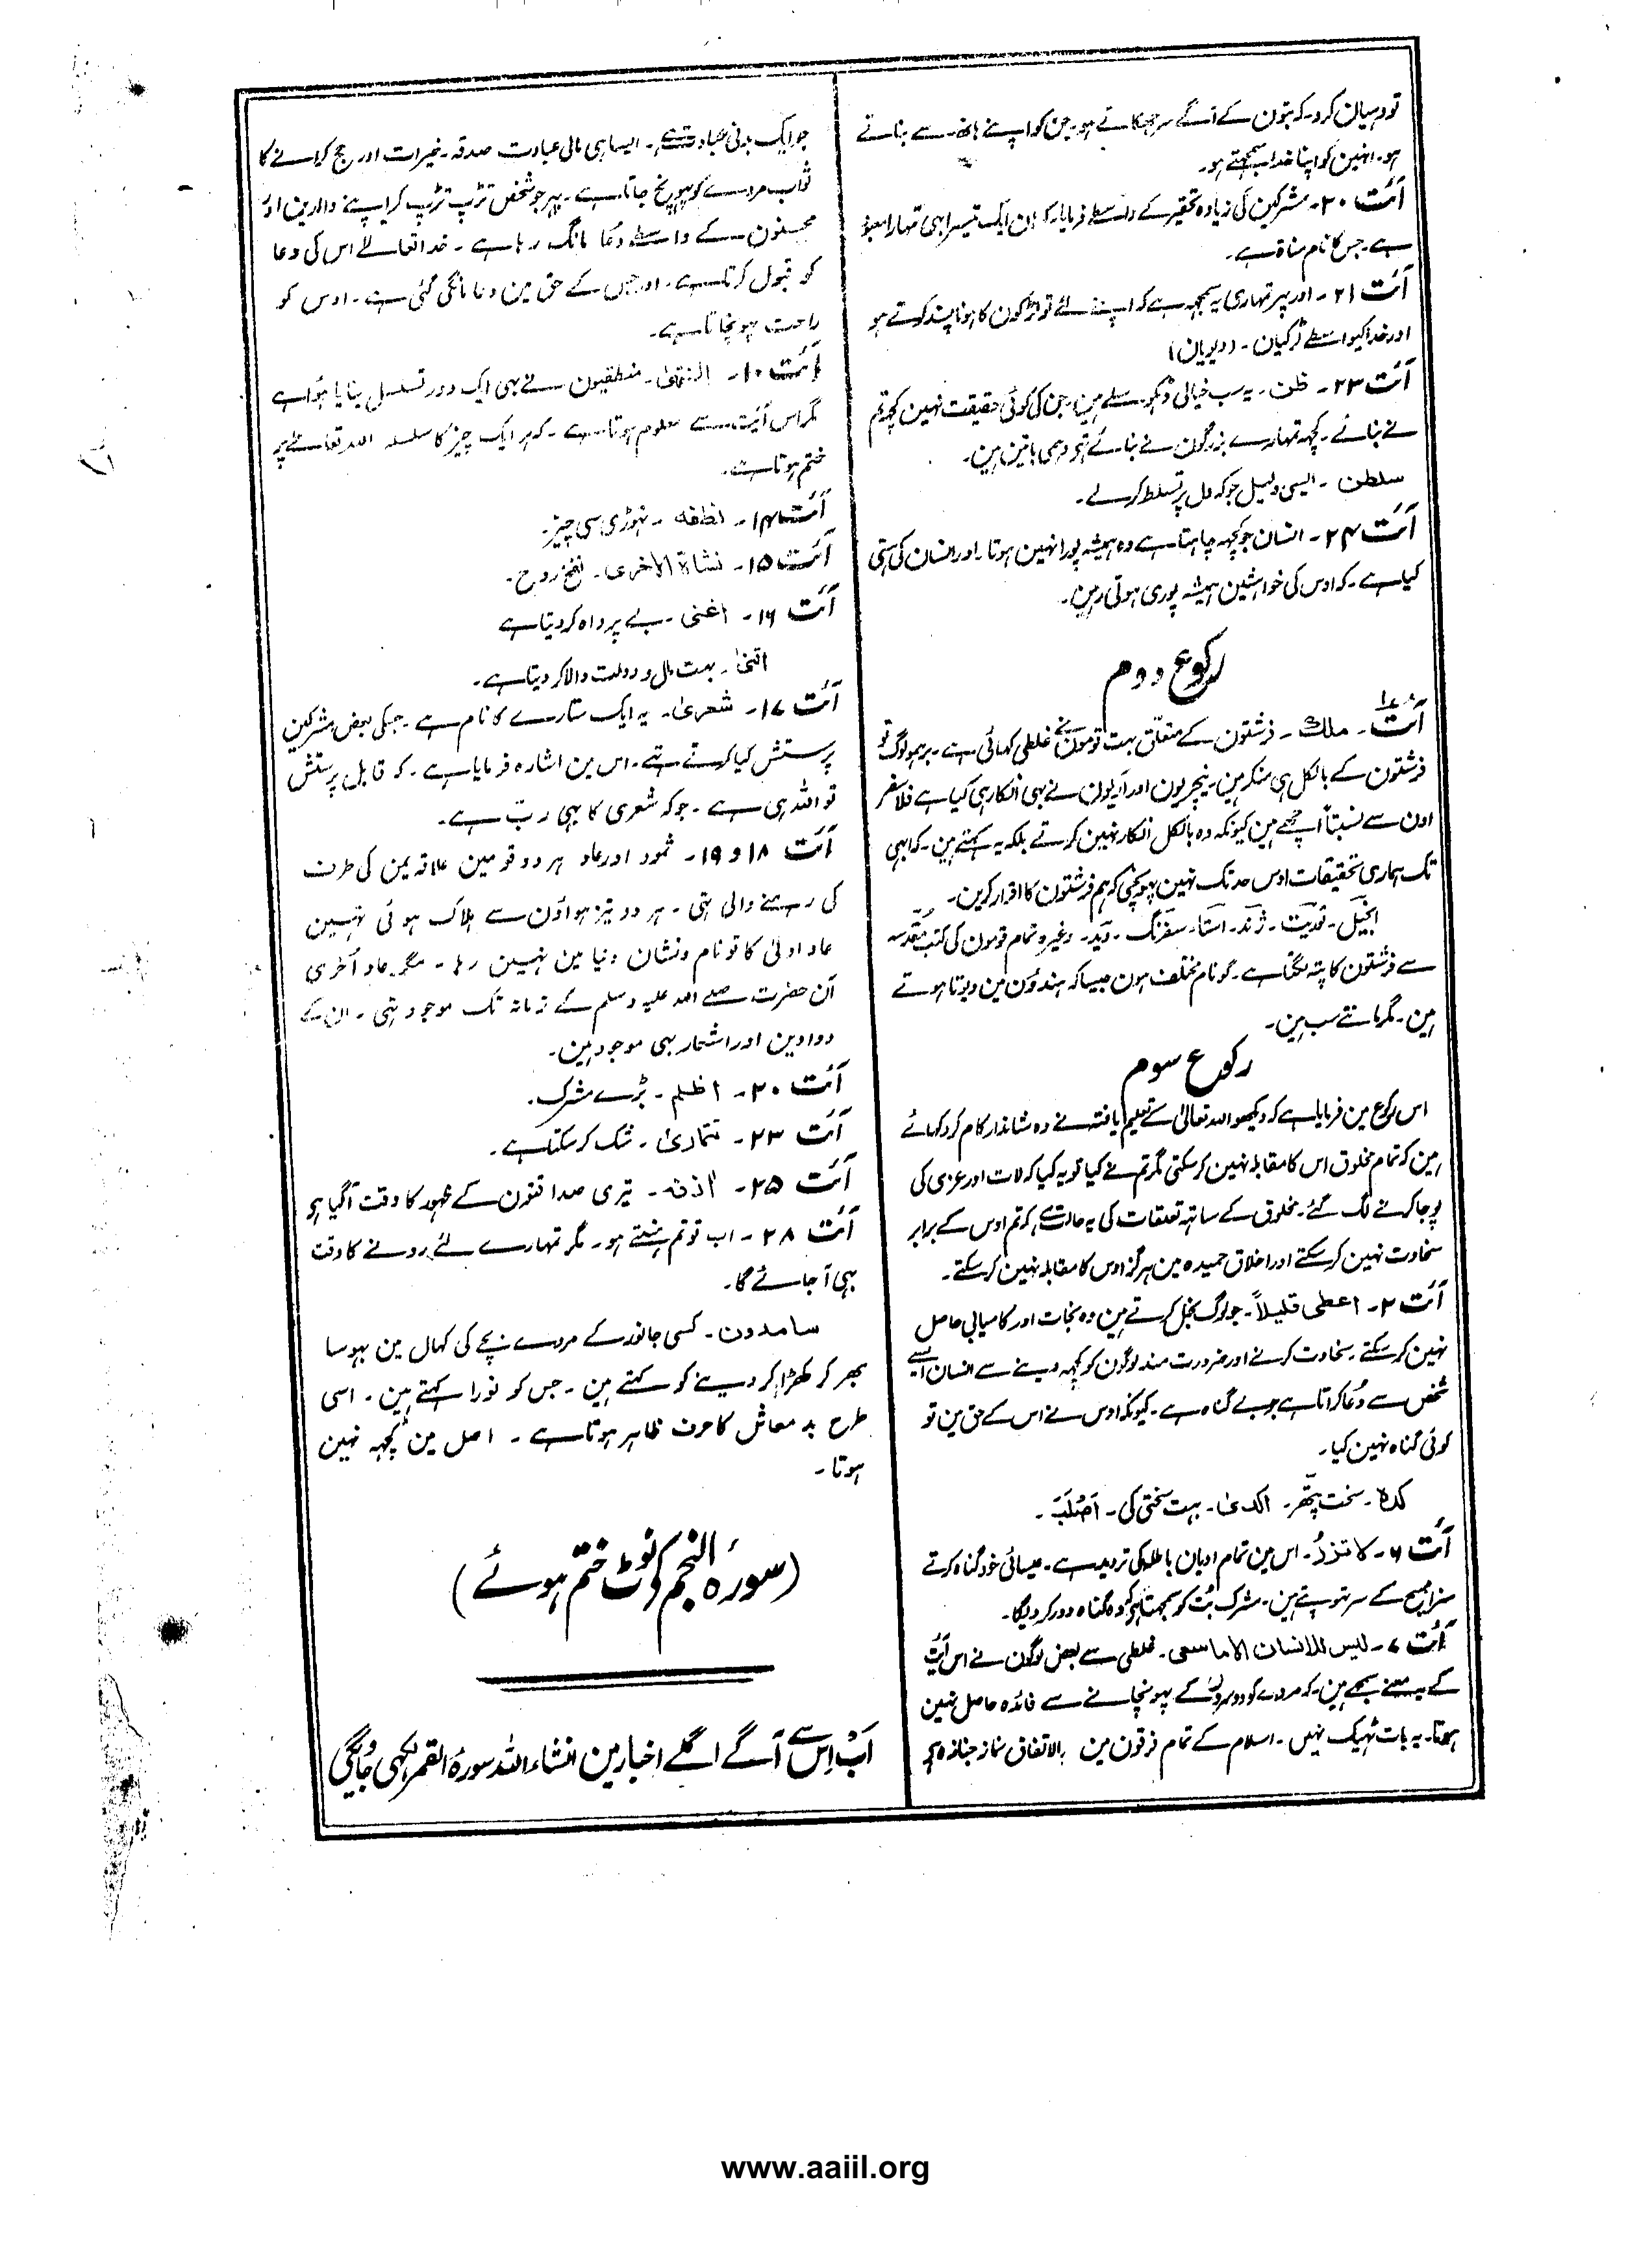 تو دہیان کرو۔ کہ بتون کے آگے سر جھکاتے ہو۔ جن کو اپنے ہاتھ سے بناتے
ہو۔ انہین کو اپنا خدا سمجھتے ہو۔
آئت ۲۰۔ مشرکین کی زیادہ تحقیر کے واسطے فرمایا۔ کہ ان ایک تیسرا بہی تمہارا معبود
ہے۔ جس کا نام مناۃ ہے۔
آئت ۲۱۔ اور پہر تمہاری یہ سمجہہ ہے کہ اپنے لئے تو لڑکون کا ہونا پسند کرتے ہو
اور خدا کیواسطے لڑکیان۔ (دیویان)
آئت ۲۳۔ ظن۔ یہ سب خیالی ڈہکوسلے ہین۔ جن کی کوئی حقیقت نہین کچہہ تم
نے بنائے۔ کچہہ تمہارے بزرگون نے بنائے نری وہمی باتین ہین۔
سلطن۔ ایسی دلیل جو کہ دل پر تسلط کرلے۔
آئت ۲۴۔ انسان جو کچہہ چاہتا ہے وہ ہمیشہ پورا نہین ہوتا۔ اور انسان کی ہستی
کیا ہے۔ کہ اوس کی خواہشین ہمیشہ پوری ہوتی رہین۔
رکوع دوم
آئت۔ ملک۔ فرشتون کے متعلق بہت قومون نے غلطی کہائی ہے۔ برہمو لوگ تو
فرشتون کے بالکل ہی منکر ہین۔ نیچریون اور آریون نے بہی انکار ہی کیا ہے فلاسفر
اون سے نسبتاً اچھے ہین کیونکہ وہ بالکل انکار نہین کرتے بلکہ یہ کہتے ہین۔ کہ ابہی
تک ہماری تحقیقات اوس حد تک نہین پہونچی کہ ہم فرشتون کا اقرار کرین۔
انجیل۔ توریت۔ ژند۔ استا۔ سفرنگ۔ وید۔ وغیرہ تمام قومون کی کتب مقدسہ
سے فرشتون کا پتہ لگتا ہے۔ گو نام مختلف ہون جیسا کہ ہندؤن مین دیوتا ہوتے
ہین۔ مگر مانتے سب ہین۔
رکوع سوم
اس رکوع مین فرمایا ہے کہ دیکھو اللہ تعالیٰ کے تعلیم یافتہ نے وہ شاندار کام کر دکہائے
ہین کہ تمام مخلوق اس کا مقابلہ نہین کرسکتی مگر تم نے کیا تو یہ کیا کہ لات اور عزی کی
پوجا کرنے لگ گئے۔ مخلوق کے ساتہہ تعلقات کی یہ حالت ہے کہ تم اوس کے برابر
سخاوت نہین کرسکتے اور اخلاق حمیدہ مین ہرگز اوس کا مقابلہ نہین کرسکتے۔
آئت ۲۔ اعطی قلیلاً۔ جو لوگ بخل کرتے ہین وہ نجات اور کامیابی حاصل
نہین کرسکتے۔ سخاوت کرنے اور ضرورت مند لوگون کو کچہہ دینے سے انسان ایسے
شخص سے دُعا کراتا ہے جو بے گناہ ہے۔ کیونکہ اوس نے اس کے حق مین تو
کوئی گناہ نہین کیا۔
کدۃ۔ سخت پتھر۔ اکدیٰ۔ بہت سختی کی۔ اَصْلَبَ۔
آئت ۶۔ لا تزدُ۔ اس مین تمام ادیان باطلہ کی تردید ہے۔ عیسائی خود گناہ کرتے
سزا مسیح کے سر تہوپتے ہین۔ مشرک بُت کو سمجہتا ہے کہ وہ گناہ دور کر دیگا۔
آئت ۷۔ لیس للانسان الا ما سعی۔ غلطی سے بعض لوگون نے اس آیت
کے یہ معنے سمجھے ہین۔ کہ مردے کو دوسرون کے پہونچانے سے فائدہ حاصل نہین
ہوتا۔ یہ بات ٹہیک نہین۔ اسلام کے تمام فرقون مین بالاتفاق نماز جنازہ ہے
جو ایک بدنی عبادت ہے۔ ایسا ہی مالی عبادت صدقہ۔ خیرات اور حج کرانے کا
ثواب مردے کو پہونچ جاتا ہے۔ پہر جو شخص تڑپ تڑپ کر اپنے والدین اور
محسنون کے واسطے دُعا مانگ رہا ہے۔ خدا تعالےٰ اس کی دعا
کو قبول کرتا ہے۔ اور جس کے حق مین دعا مانگی گئی ہے۔ اوس کو
راحت پہونچاتا ہے۔
آئت ۱۰۔ المنتہیٰ۔ منطقیون نے بہی ایک دور تسلسل بنایا ہُوا ہے
مگر اس آیت سے معلوم ہوتا ہے۔ کہ ہر ایک چیز کا سلسلہ اللہ تعالےٰ پر
ختم ہوتا ہے۔
آئت ۱۴۔ نطفہ۔ تہوڑی سی چیز۔
آئت ۱۵۔ نشاۃ الاخریٰ۔ نفخ روح۔
آئت ۱۶۔ اغنی۔ بے پرواہ کردیتا ہے
اقنیٰ۔ بہت مال و دولت والا کر دیتا ہے۔
آئت ۱۷۔ شعریٰ۔ یہ ایک ستارے کا نام ہے۔ جسکی بعض مشرکین
پرستش کیا کرتے تہے۔ اس مین اشارہ فرمایا ہے۔ کہ قابل پرستش
تو اللہ ہی ہے۔ جو کہ شعری کا بہی ربّ ہے۔
آئت ۱۸ و ۱۹۔ ثمود اور عاد ہر دو قومین علاقہ یمن کی طرف
کی رہنے والی تہی۔ ہر دو تیز ہواؤن سے ہلاک ہوئی تہین
عاد اولیٰ کا تو نام و نشان دنیا مین نہین رہا۔ مگر عاد اُخری
آن حضرت صلے اللہ علیہ وسلم کے زمانہ تک موجود تہی۔ ان کے
دواوین اور اشعار بہی موجود ہین۔
آئت ۲۰۔ اظلم۔ بڑے مشرک۔
آئت ۲۳۔ تتماریٰ۔ شک کرسکتا ہے۔
آئت ۲۵۔ اُزفہ۔ تیری صداقتون کے ظہور کا وقت آگیا ہے
آئت ۲۸۔ اب تو تم ہنستے ہو۔ مگر تمہارے لئے رونے کا وقت
بہی آجائے گا۔
سامدون۔ کسی جانور کے مردے بچے کی کہال مین بہوسا
بھر کر کھڑا کر دینے کو کہتے ہین۔ جس کو نورا کہتے ہین۔ اسی
طرح بد معاش کا حرف ظاہر ہوتا ہے۔ اصل مین کچہہ نہین
ہوتا۔
(سورہ النجم کے نوٹ ختم ہوئے)
اَبْ اِس سے آگے اگلے اخبار مین انشاء اللہ سورۃ القمر لکہی جائیگی
www.aaiil.org